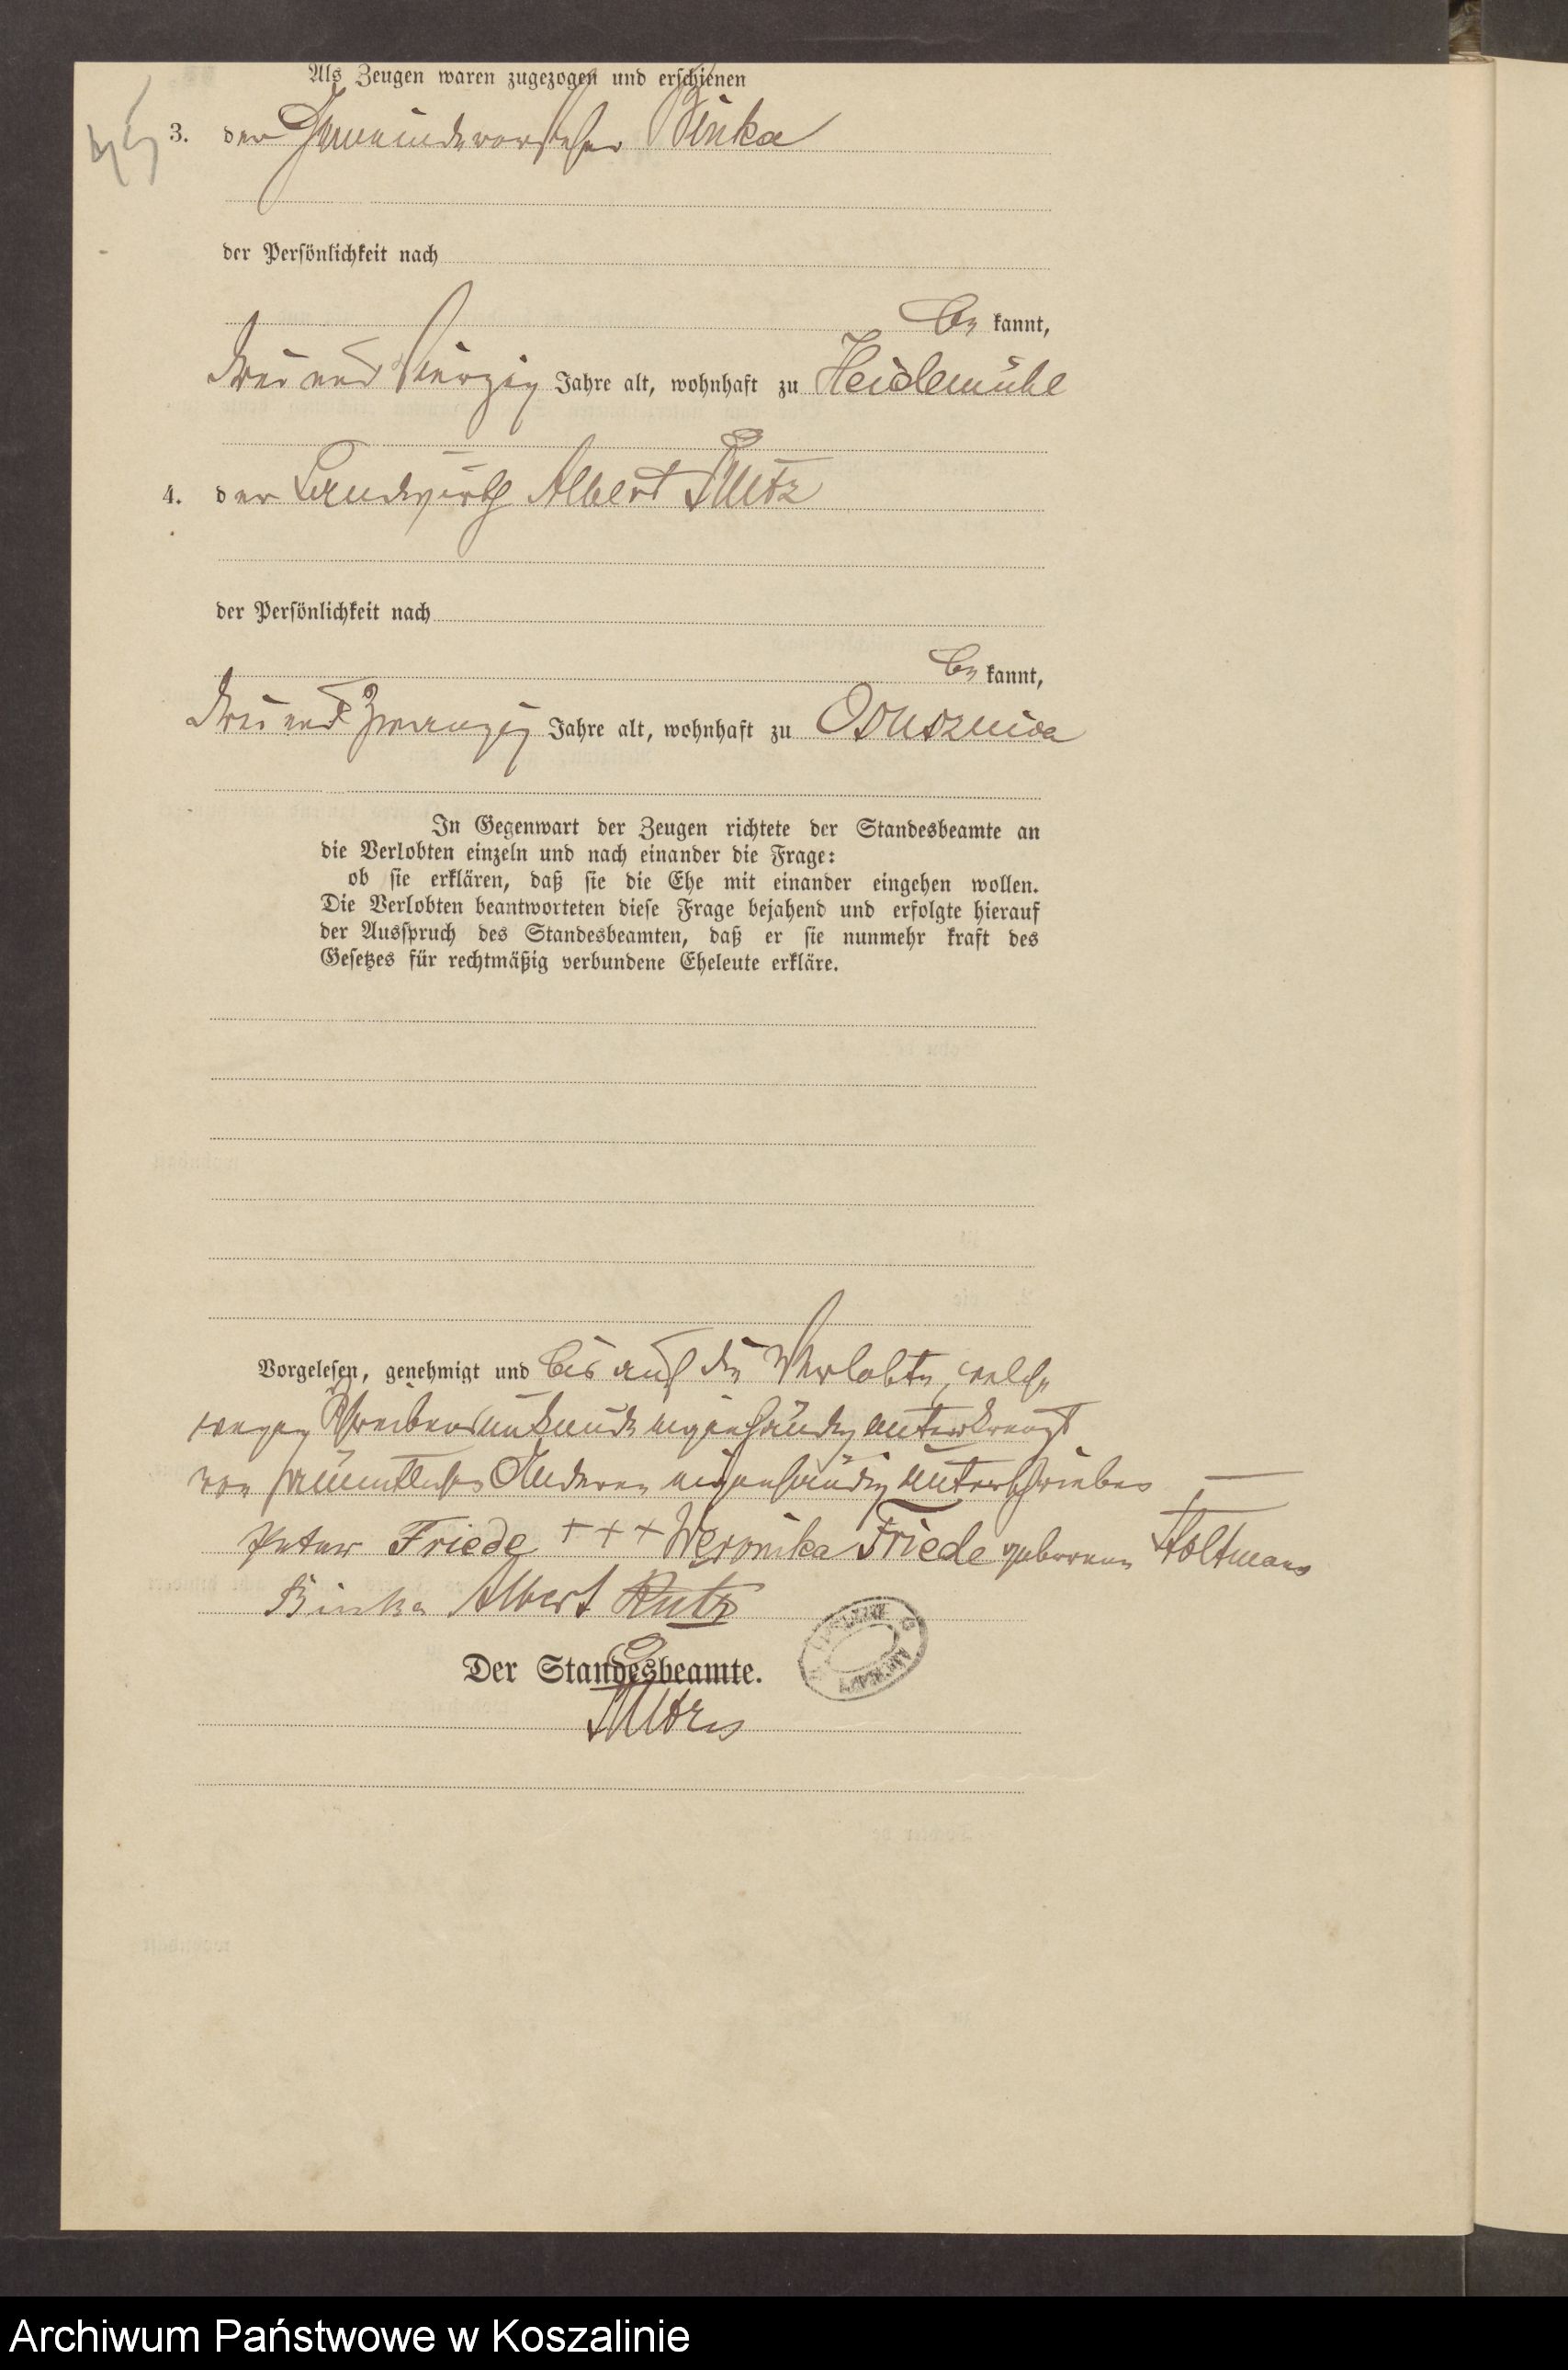 Als Zeugen waren zugezogen und erschienen
3. der Gemeindevorsteher Binka
der Persönlichkeit nach
be kannt,
drei und Vierzig Jahre alt, wohnhaft zu Heidemühl
4. der Landwirth Albert Rutz
der Persönlichkeit nach
be kannt,
drei und Zwanzig Jahre alt, wohnhaft zu Ossusznica
In Gegenwart der Zeugen richtete der Standesbeamte an
die Verlobten einzeln und nach einander die Frage:
ob sie erklären, daß sie die Ehe mit einander eingehen wollen.
Die Verlobten beantworteten diese Frage bejahend und erfolgte hierauf
der Ausspruch des Standesbeamten, daß er sie nunmehr kraft des
Gesetzes für rechtmäßig verbundene Eheleute erkläre.
Vorgelesen, genehmigt und bis auf die Verlobte, welche
wegen Schreibensunkunde eigenhändig unterkreuzt
von sämmtlichen Anderen eigenhändig unterschrieben —
Peter Friede +++ Weronika Friede geborene Stoltmann
Binka Albert Rutz
Der Standesbeamte.
Archiwum Państwowe w Koszalinie